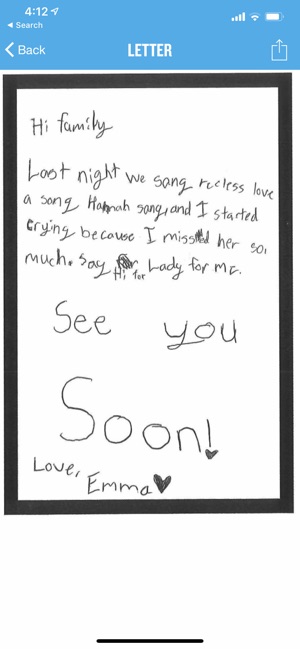 4:12
Search
Back
LETTER
Hi family
Last night we sang recless love
a song Hannah sang, and I started
Crying because I missed her so,
much. Say Hi for Lady for me.
See you
Soon!
Love,
Emma